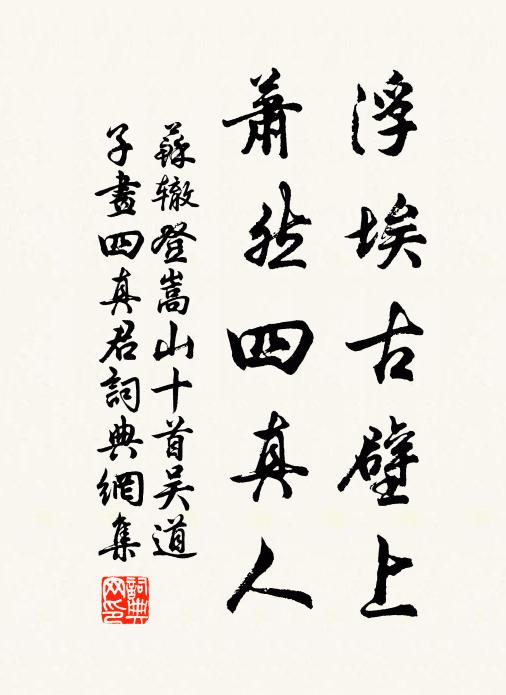 浮埃古壁上
蕭然四真人
蘇轍登嵩山十首吴道
子畫四真君詞典網集
詞典
网印